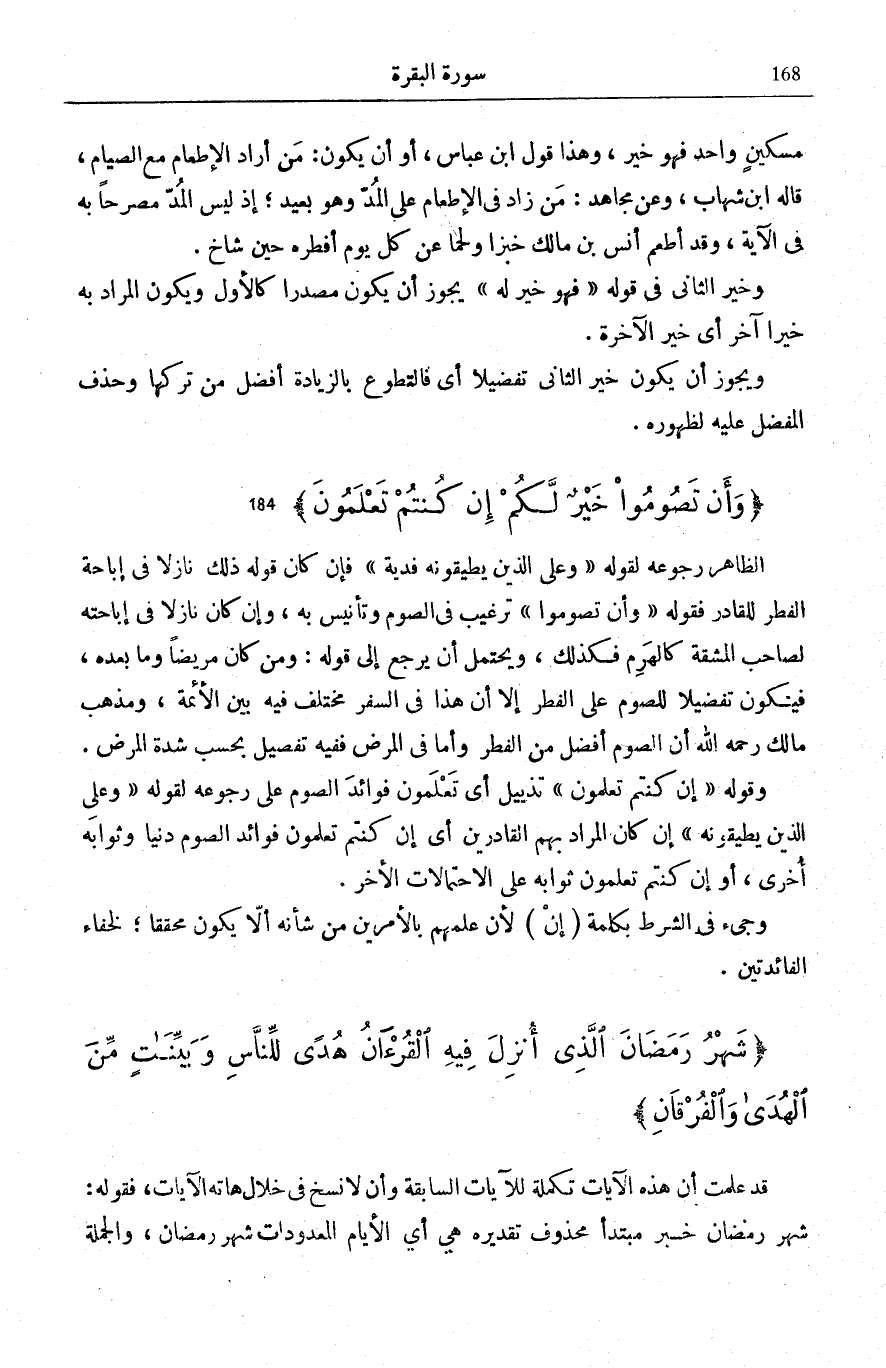 168
سورة البقرة
مسكينٍ واحد فهو خير ، وهذا قول ابن عباس ، أو أن يكون: مَن أراد الإطعام مع الصيام ،
قاله ابن شهاب ، وعن مجاهد : مَن زاد فى الإطعام على المُدّ وهو بعيد ؛ إذ ليس المُدّ مصرحاً به
فى الآية ، وقد أطعم أنس بن مالك خبزا ولحما عن كل يوم أفطره حين شاخ .
وخير الثانى فى قوله « فهو خير له » يجوز أن يكون مصدرا كالأول ويكون المراد به
خيرا آخر أى خير الآخرة .
ويجوز أن يكون خير الثانى تفضيلا أى فالتطوع بالزيادة أفضل من تركها وحذف
المفضل عليه لظهوره .
﴿ وَأَن تَصُومُواْ خَيْرٌ لَّكُمْ إِن كُنتُمْ تَعْلَمُونَ ﴾ 184
الظاهر رجوعه لقوله « وعلى الذين يطيقونه فدية » فإن كان قوله ذلك نازلا فى إباحة
الفطر للقادر فقوله « وأن تصوموا » ترغيب فى الصوم وتأنيس به ، وإن كان نازلا فى إباحته
لصاحب المشقة كالهَرِم فكذلك ، ويحتمل أن يرجع إلى قوله : ومن كان مريضاً وما بعده ،
فيكون تفضيلا للصوم على الفطر إلا أن هذا فى السفر مختلف فيه بين الأئمة ، ومذهب
مالك رحمه الله أن الصوم أفضل من الفطر وأما فى المرض ففيه تفصيل بحسب شدة المرض .
وقوله « إن كنتم تعلمون » تذييل أى تَعْلَمون فوائدَ الصوم على رجوعه لقوله « وعلى
الذين يطيقونه » إن كان المراد بهم القادرين أى إن كنتم تعلمون فوائد الصوم دنيا وثوابَه
أُخرى ، أو إن كنتم تعلمون ثوابه على الاحتمالات الأخر .
وجىء فى الشرط بكلمة ( إنْ ) لأن علمهم بالأمرين من شأنه ألّا يكون محققا ؛ لخفاء
الفائدتين .
﴿ شَهْرُ رَمَضَانَ ٱلَّذِى أُنزِلَ فِيهِ ٱلْقُرْءَانُ هُدًى لِّلنَّاسِ وَبَيِّنَـٰتٍ مِّنَ
ٱلْهُدَىٰ وَٱلْفُرْقَانِ ﴾
قد علمت أن هذه الآيات تكملة للآيات السابقة وأن لا نسخ فى خلال هاته الآيات، فقوله:
شهر رمضان خبر مبتدأ محذوف تقديره هي أي الأيام المعدودات شهر رمضان ، والجملة